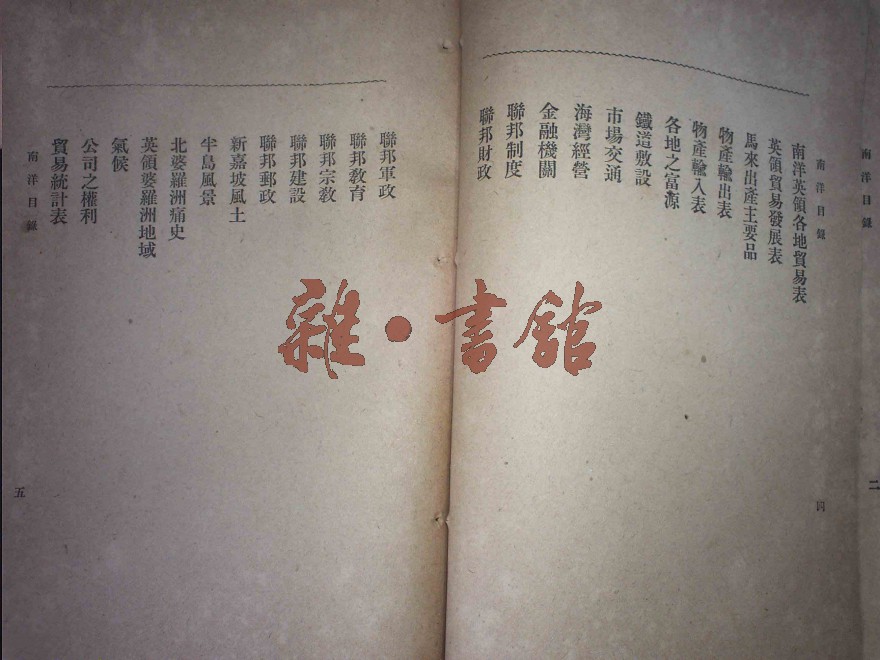 南洋目錄
二
南洋目錄
四
南洋英領各地貿易表
英領貿易發展表
馬來出產主要品
物產輸出表
物產輸入表
各地之富源
鐵道敷設
市場交通
海灣經營
金融機關
聯邦制度
聯邦財政
聯邦軍政
聯邦教育
聯邦宗教
聯邦建設
聯邦郵政
新嘉坡風土
半島風景
北婆羅洲痛史
英領婆羅洲地域
氣候
公司之權利
貿易統計表
南洋目錄
五
雜·書館